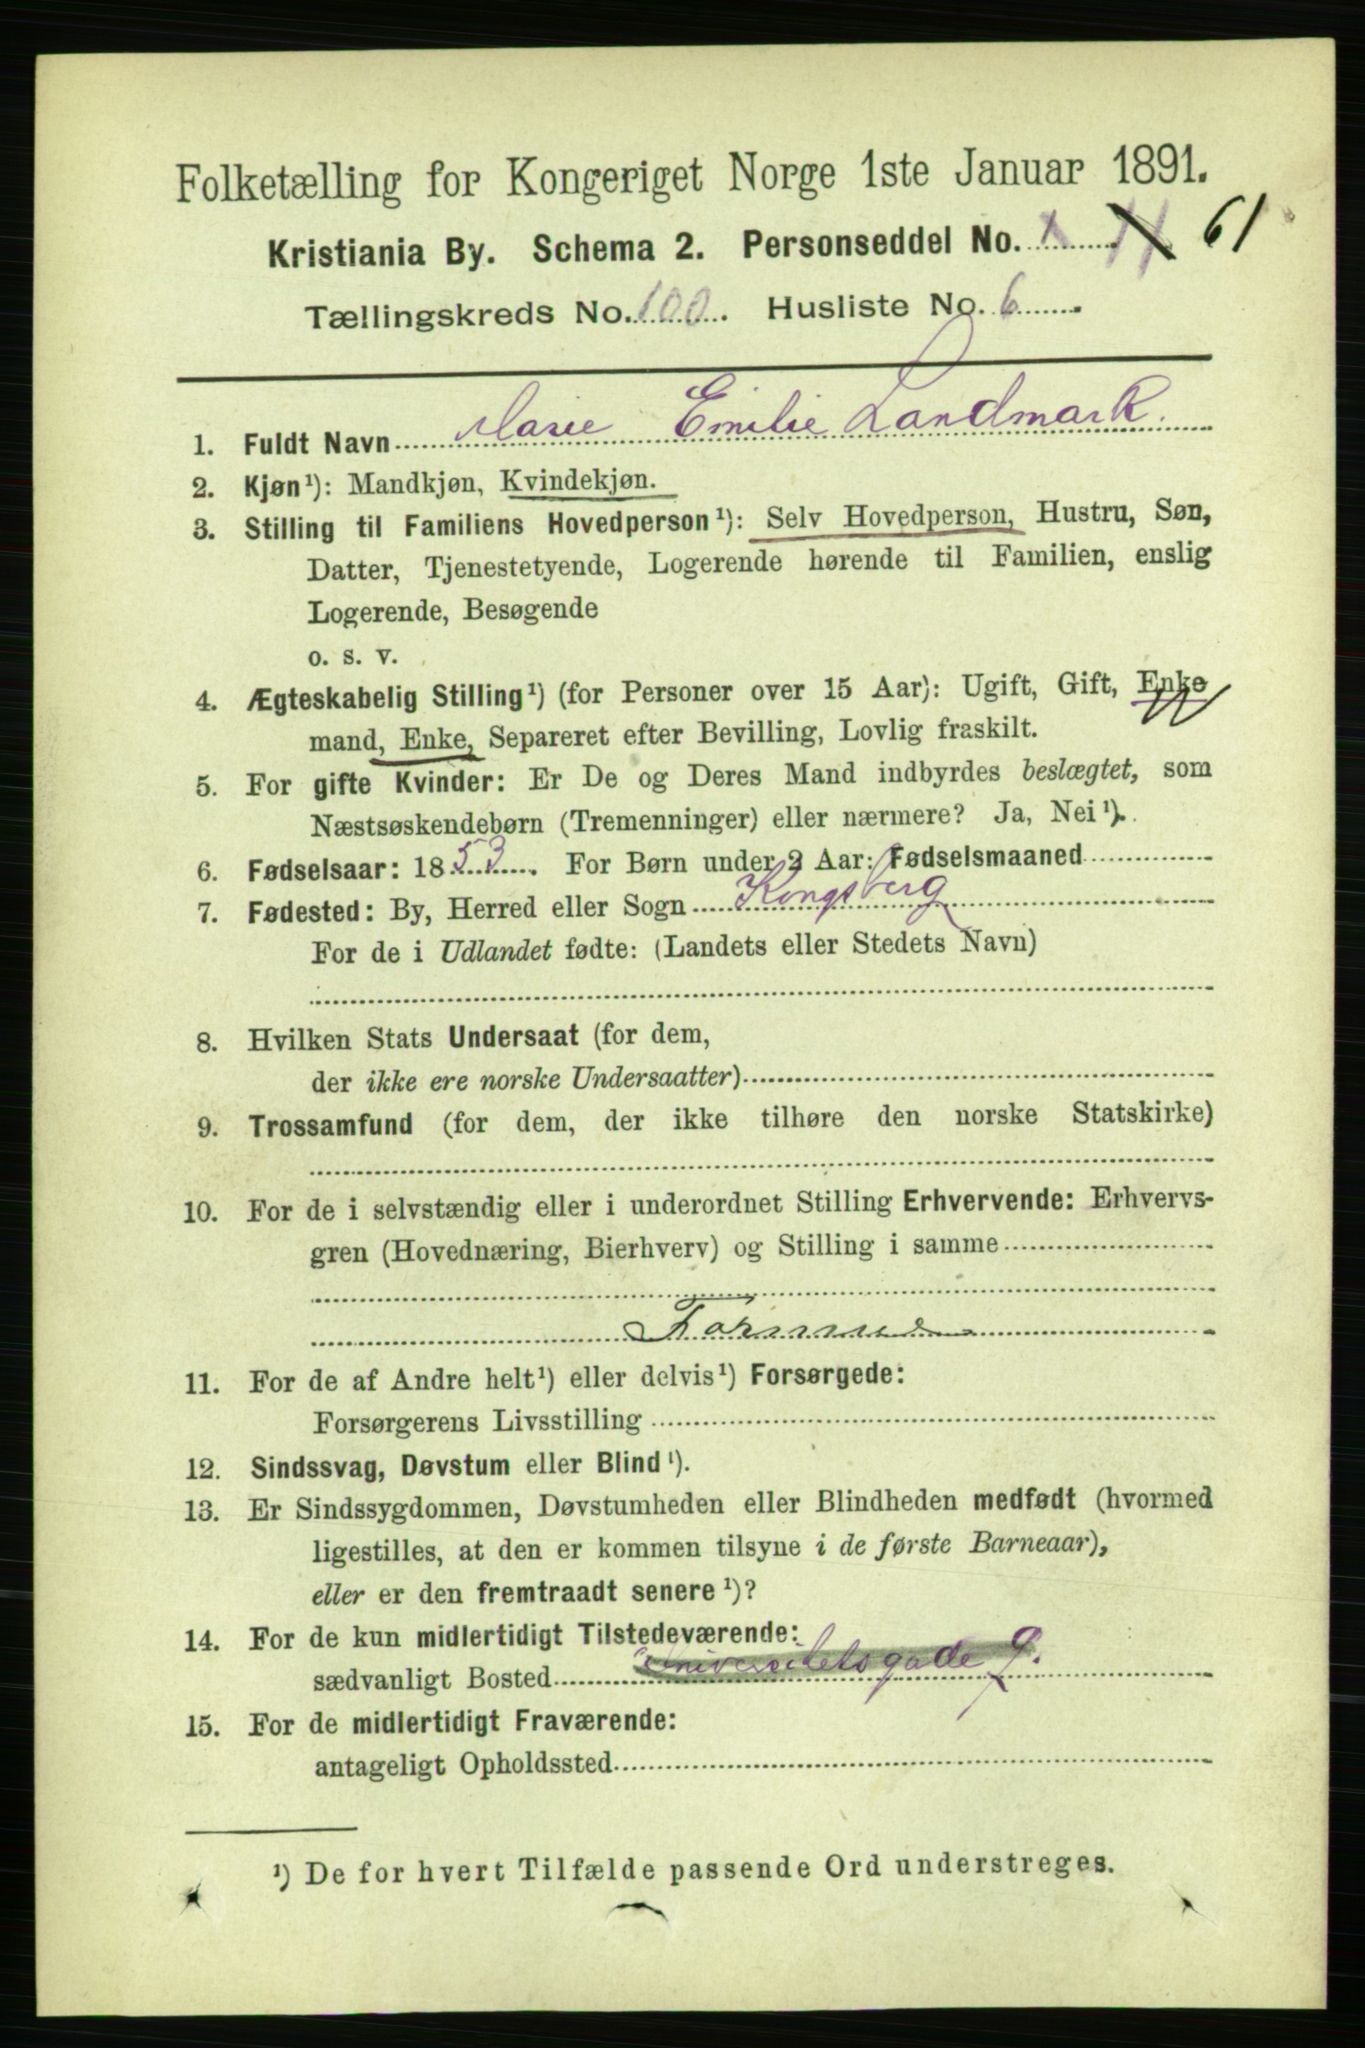 Folketælling for Kongeriget Norge 1ste Januar 1891.
Kristiania By. Schema 2. Personseddel No. 61
Tællingskreds No. 100. Husliste No. 6
1. Fuldt Navn Marie Emilie Landmark.
2. Kjøn¹): Mandkjøn, Kvindekjøn.
3. Stilling til Familiens Hovedperson¹): Selv Hovedperson, Hustru, Søn,
Datter, Tjenestetyende, Logerende hørende til Familien, enslig
Logerende, Besøgende
o. s. v.
4. Ægteskabelig Stilling¹) (for Personer over 15 Aar): Ugift, Gift, Enke
mand, Enke, Separeret efter Bevilling, Lovlig fraskilt.
5. For gifte Kvinder: Er De og Deres Mand indbyrdes beslægtet, som
Næstsøskendebørn (Tremenninger) eller nærmere? Ja, Nei¹).
6. Fødselsaar: 1853. For Børn under 2 Aar: Fødselsmaaned
7. Fødested: By, Herred eller Sogn Kongsberg
For de i Udlandet fødte: (Landets eller Stedets Navn)
8. Hvilken Stats Undersaat (for dem,
der ikke ere norske Undersaatter)
9. Trossamfund (for dem, der ikke tilhøre den norske Statskirke)
10. For de i selvstændig eller i underordnet Stilling Erhvervende: Erhvervs-
gren (Hovednæring, Bierhverv) og Stilling i samme
Formue
11. For de af Andre helt¹) eller delvis¹) Forsørgede:
Forsørgerens Livsstilling
12. Sindssvag, Døvstum eller Blind¹).
13. Er Sindssygdommen, Døvstumheden eller Blindheden medfødt (hvormed
ligestilles, at den er kommen tilsyne i de første Barneaar),
eller er den fremtraadt senere¹)?
14. For de kun midlertidigt Tilstedeværende:
sædvanligt Bosted Universitetsgade 9.
15. For de midlertidigt Fraværende:
antageligt Opholdssted
¹) De for hvert Tilfælde passende Ord understreges.